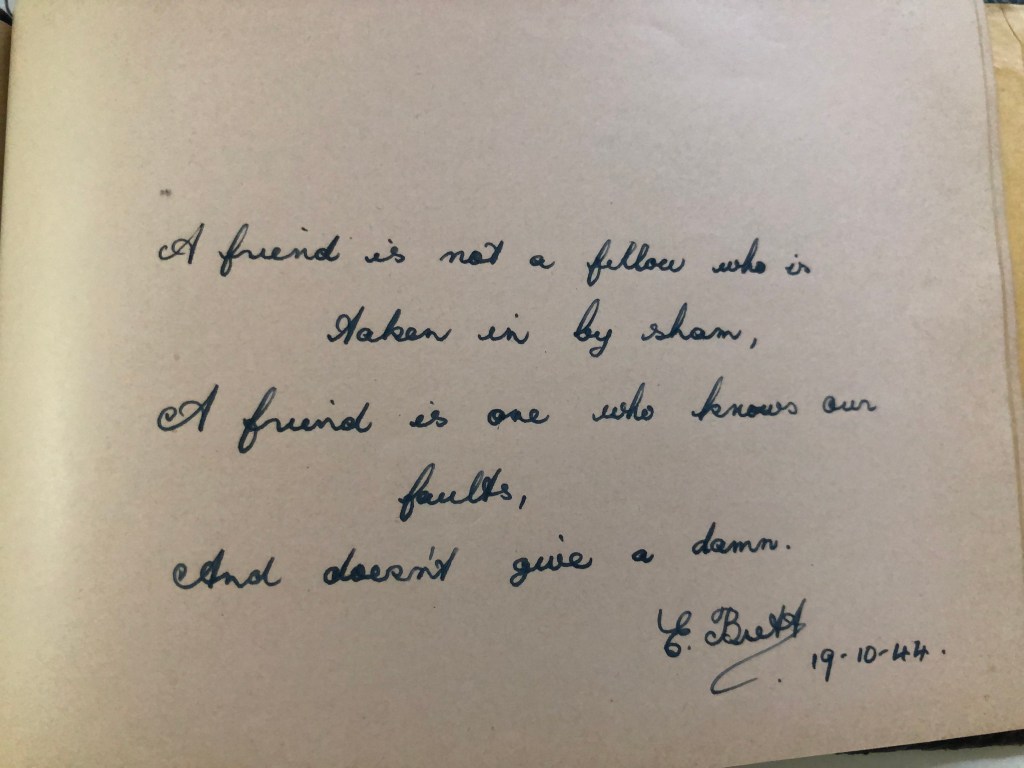 A friend is not a fellow who is
taken in by sham,
A friend is one who knows our
faults,
And doesn't give a damn.
E. Brett
19-10-44.